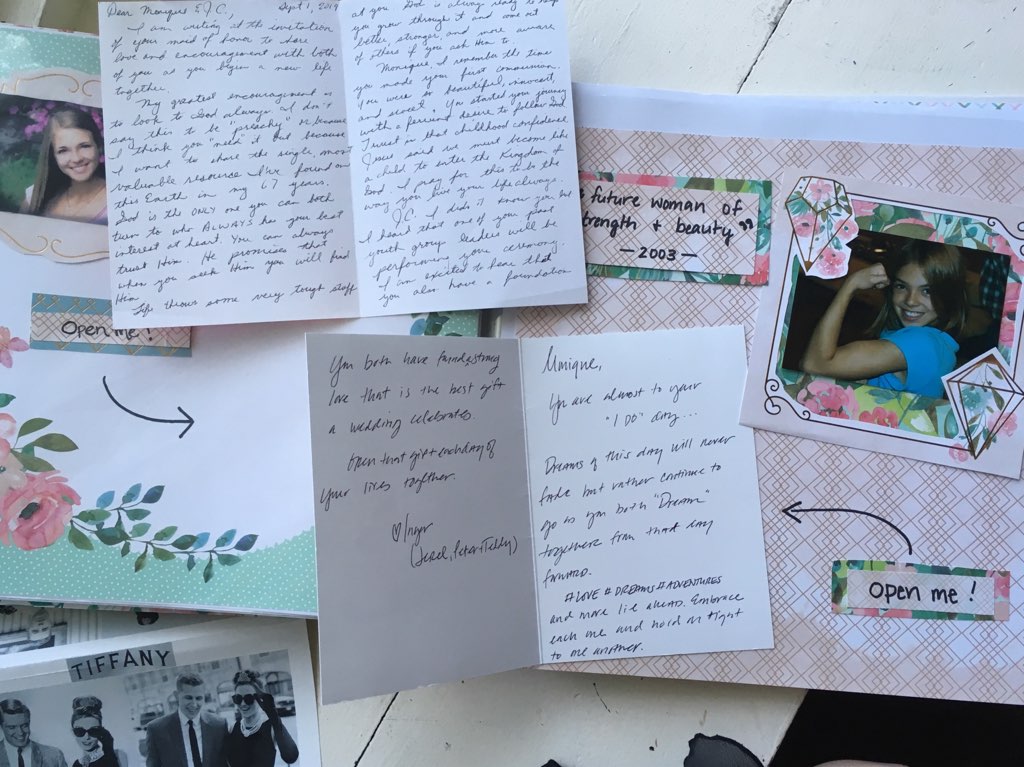 Dear Monique & J.C., Sept 1, 2019
I am writing at the invitation
of your maid of honor to share
love and encouragement with both
of you as you begin a new life
together.
My greatest encouragement is
to look to God always. I don't
say this to be "preachy" or because
I think you "need" it but because
I want to share the single, most
valuable resource I've found on
this Earth in my 67 years.
God is the ONLY one you can both
turn to who ALWAYS has your best
interest at heart. You can always
trust Him. He promises that
when you seek Him you will find
Him
Life throws some very tough stuff
at you. God is always ready to help
you grow through it and come out
better, stronger, and more aware
of others if you ask Him to.
Monique, I remember the time
you made your first communion.
You were so beautiful, innocent,
and sweet. You started your journey
with a fervent desire to follow and
Trust in that childhood confidence
Jesus said we must become like
a child to enter the Kingdom of
God. I pray for this to be the
way you live your life always.
J.C. I didn't know you but
I heard that one of your past
youth group leaders will be
performing your ceremony.
I am excited to hear that
you also have a foundation
Open me!
future woman of
strength + beauty"
— 2003 —
You both have found strong
love that is the best gift
a wedding celebrates.
Open that gift each day of
your lives together.
♡
(Jerel, Peter + Teddy)
Monique,
You are almost to your
"I DO" day...
Dreams of this day will never
fade but rather continue to
go as you both "Dream"
together from that day
forward.
#LOVE #DREAMS #ADVENTURES
and more lie ahead. Embrace
each one and hold on tight
to one another.
Open me!
TIFFANY